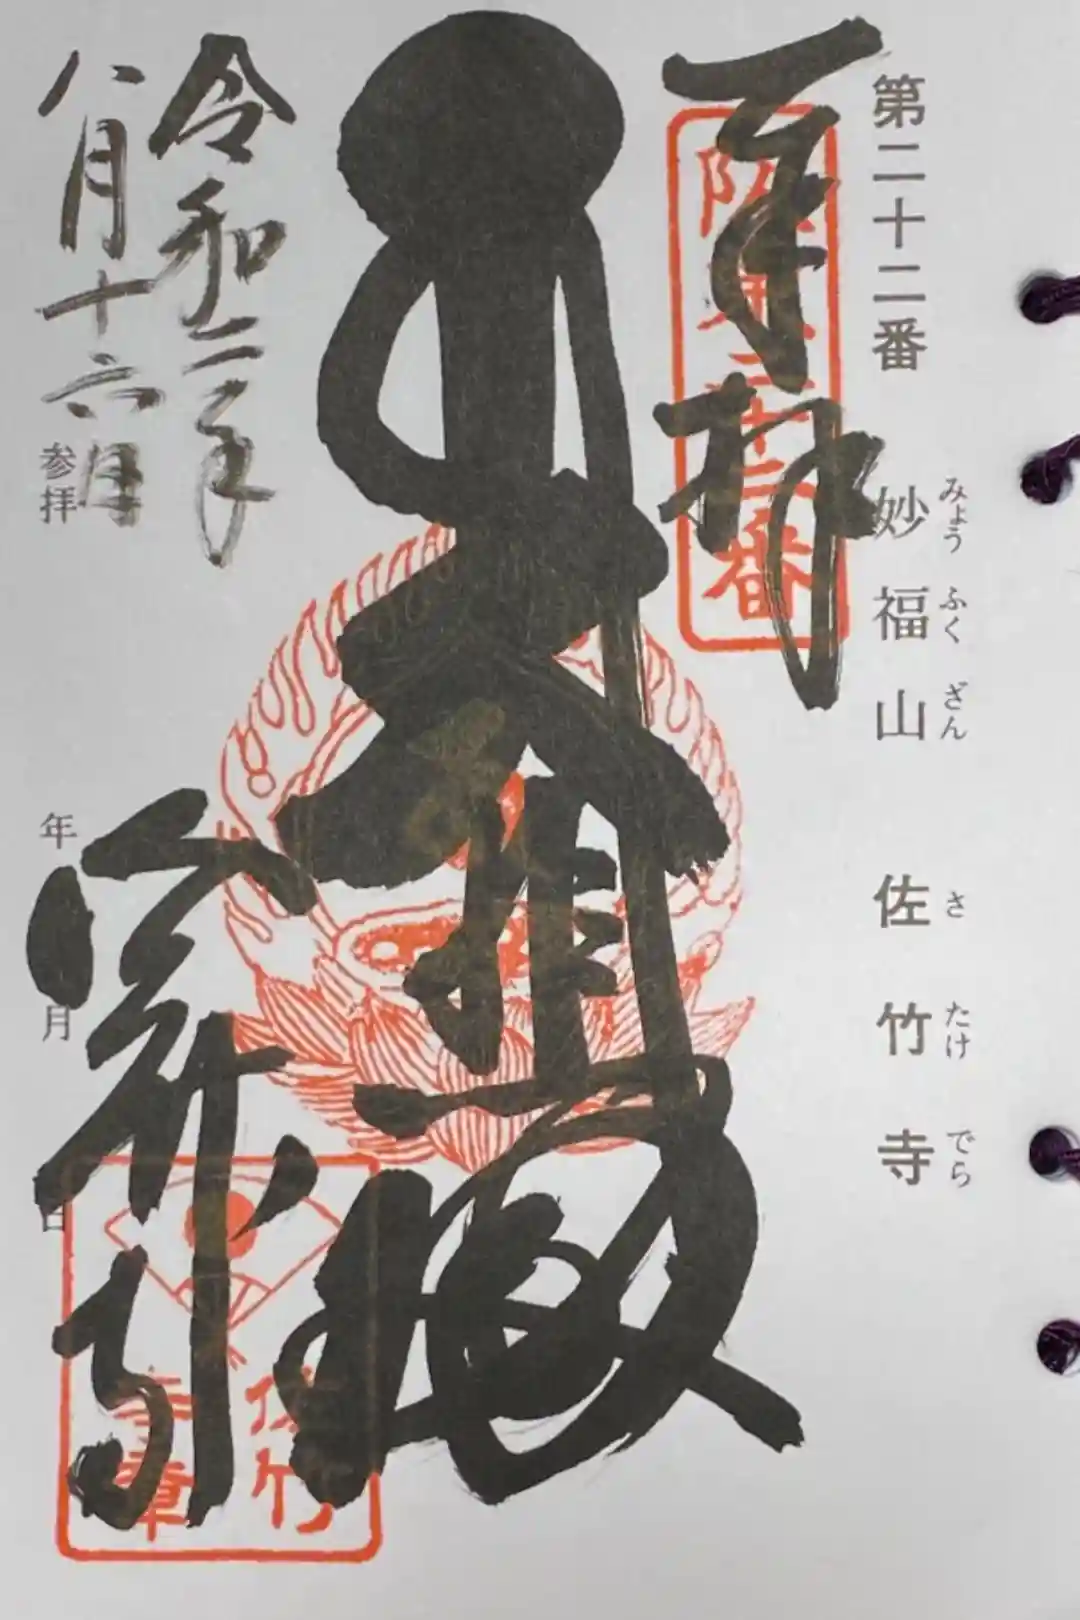 第二十二番
妙福山 佐竹寺
みょうふくざん さたけでら
奉拝
坂東二十二番
大悲殿
佐竹寺
佐竹
寺章
令和二年
八月十六日
参拝
年 月 日